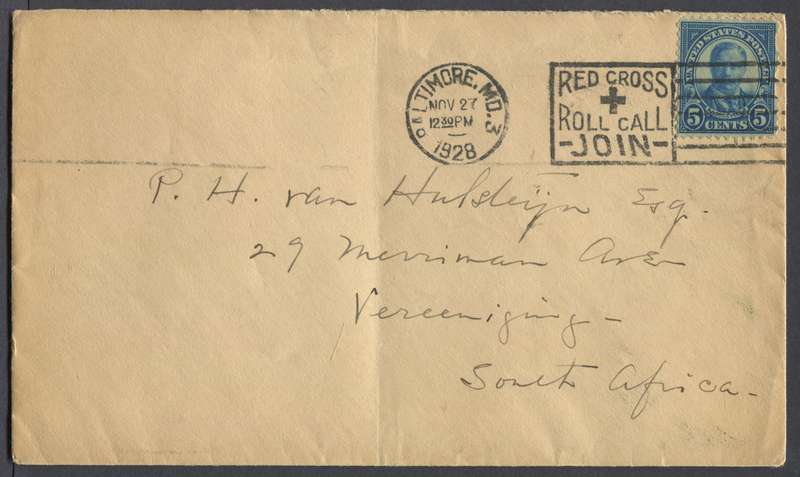 UNITED STATES POSTAGE
5 CENTS 5
BALTIMORE, MD. 3
NOV 27
12 30 PM
1928
RED CROSS
ROLL CALL
-JOIN-
P. H. van Hulsteijn Esq.
29 Merriman Ave
Vereeniging -
South Africa -